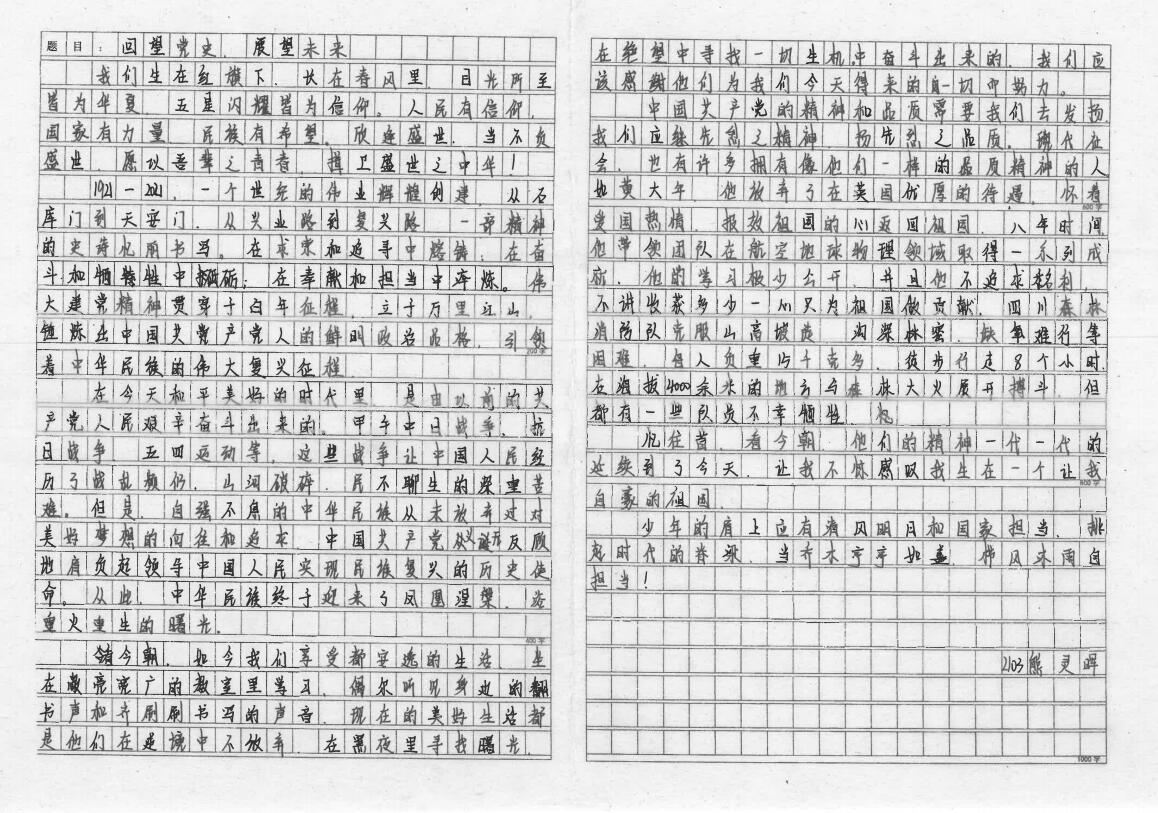 题目：回望党史、展望未来
我们生在红旗下、长在春风里、目光所至
皆为华夏、五星闪耀皆为信仰。人民有信仰、
国家有力量、民族有希望。欣逢盛世、当不负
盛世、愿以吾辈之青春、捍卫盛世之中华！
1921—2021、一个世纪的伟业辉煌创建、从石
库门到天安门、从兴业路到复兴路、一部精神
的史诗忆册书写。在求索和追寻中熔铸；在奋
斗和牺牲中砥砺；在奉献和担当中淬炼。伟
大建党精神贯穿于百年征程、立于万里江山、
锤炼出中国共产党人的鲜明政治品格、引领
200字
着中华民族的伟大复兴征程。
在今天和平美好的时代里、是由以前的共
产党人民艰辛奋斗出来的。甲午中日战争、抗
日战争、五四运动等、这些战争让中国人民经
历了战乱频仍、山河破碎、民不聊生的深重苦
难。但是、自强不息的中华民族从未放弃过对
美好梦想的向往和追求、中国共产党义无反顾
地肩负起领导中国人民实现民族复兴的历史使
命。从此、中华民族终于迎来了凤凰涅槃、浴
重火重生的曙光。
400字
看今朝、如今我们享受都安逸的生活、坐
在敞亮宽广的教室里学习、偶尔听见身边的翻
书声和齐刷刷书写的声音、现在的美好生活都
是他们在逆境中不放弃、在黑夜里寻找曙光、
在绝望中寻找一切生机中奋斗出来的、我们应
该感谢他们为我们今天得来的一切而努力。
中国共产党的精神和品质需要我们去发扬、
我们应继先烈之精神、扬先烈之品质。现代社
会、也有许多拥有像他们一样的品质精神的人
如黄大年、他放弃了在英国优厚的待遇、怀着
600字
爱国热情、报效祖国的心返回祖国、八年时间
他带领团队在航空地球物理领域取得一系列成
就、他的学习极少公开、并且他不追求名利、
不讲收获多少一心只为祖国做贡献、四川森林
消防队克服山高坡陡、沟深林密、缺氧难行等
困难、每人负重15千克多、徒步行走8个小时、
在海拔4000余米的地方与森林大火展开搏斗、但
都有一些队员不幸牺牲、
忆往昔、看今朝、他们的精神一代一代的
延续到了今天、让我不惊感叹我生在一个让我
800字
自豪的祖国、
少年的肩上应有清风明月和国家担当、挑
起时代的脊梁、当乔木亭亭如盖、栉风沐雨自
担当！
2103熊灵晖
1000字